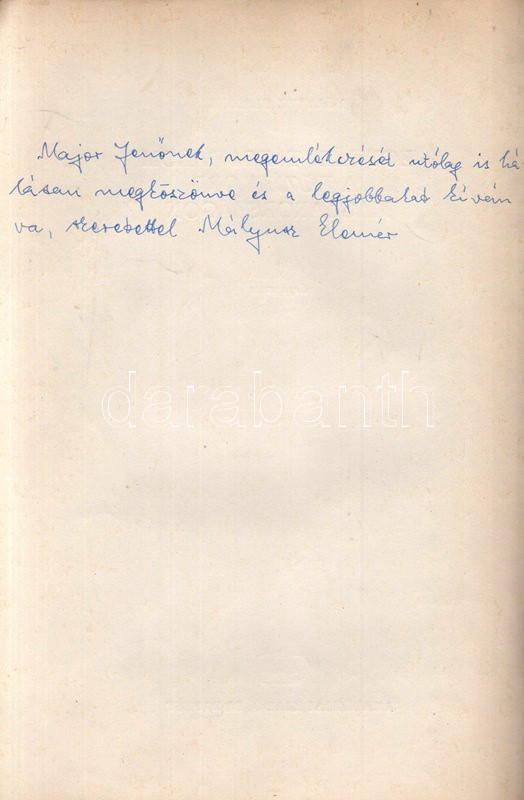 Major Jenőnek, megemlékezését utólag is há-
lásan megköszönve és a legjobbakat kíván
va, szeretettel Mályusz Elemér
darabanth